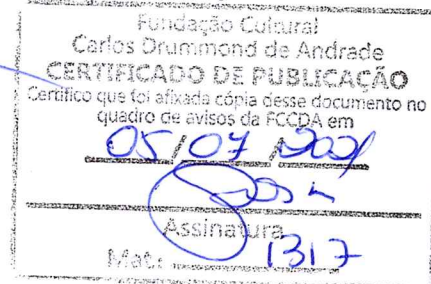 Fundação Cultural
Carlos Drummond de Andrade
CERTIFICADO DE PUBLICAÇÃO
Certifico que foi afixada cópia desse documento no
quadro de avisos da FCCDA em
05/07/2021
Assinatura
Mat: 1317